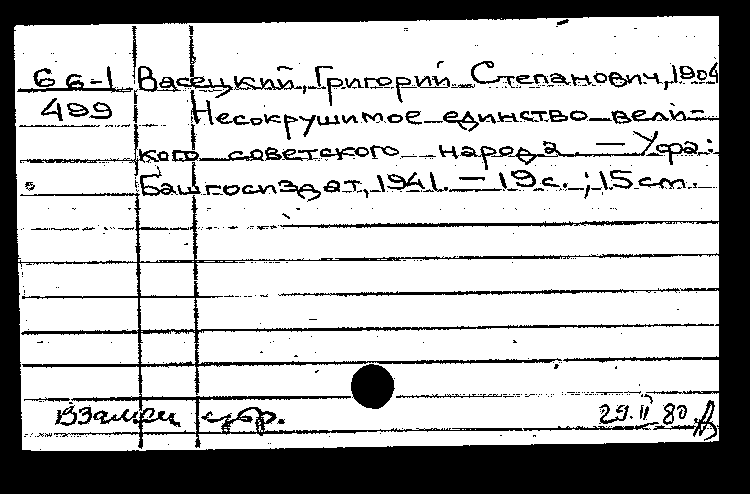 66-1 Васецкий, Григорий Степанович, 1904
499 Несокрушимое единство вели-
кого советского народа. — Уфа:
Башгосиздат, 1941. — 19 с.; 15 cm.
Взамен
29.II 80